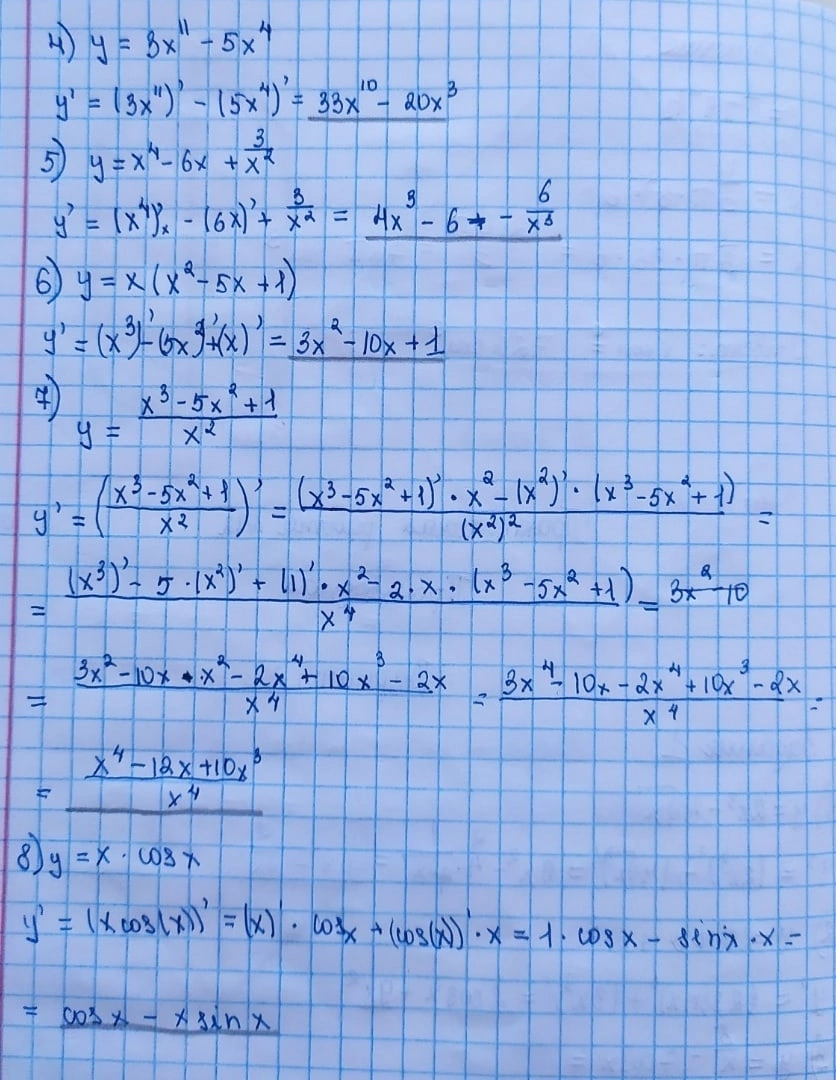 4) y = 3x¹¹ - 5x⁴
y' = (3x¹¹)' - (5x⁴)' = 33x¹⁰ - 20x³
5) y = x⁴ - 6x + 3/x²
y' = (x⁴)'ₓ - (6x)' + 3/x² = 4x³ - 6 - 6/x³
6) y = x(x² - 5x + 1)
y' = (x³)' - (5x²)' + (x)' = 3x² - 10x + 1
7) y = (x³ - 5x² + 1)/x²
y' = ((x³ - 5x² + 1)/x²)' = ((x³ - 5x² + 1)' · x² - (x²)' · (x³ - 5x² + 1))/(x²)² =
= ((x³)' - 5 · (x²)' + (1)' · x² - 2 · x · (x³ - 5x² + 1))/x⁴ = 3x² - 10
= (3x² - 10x · x² - 2x⁴ + 10x³ - 2x)/x⁴ = (3x⁴ - 10x - 2x⁴ + 10x³ - 2x)/x⁴ =
= (x⁴ - 12x + 10x³)/x⁴
8) y = x · cos x
y' = (x cos(x))' = (x)' · cos x + (cos(x))' · x = 1 · cos x - sin x · x =
= cos x - x sin x